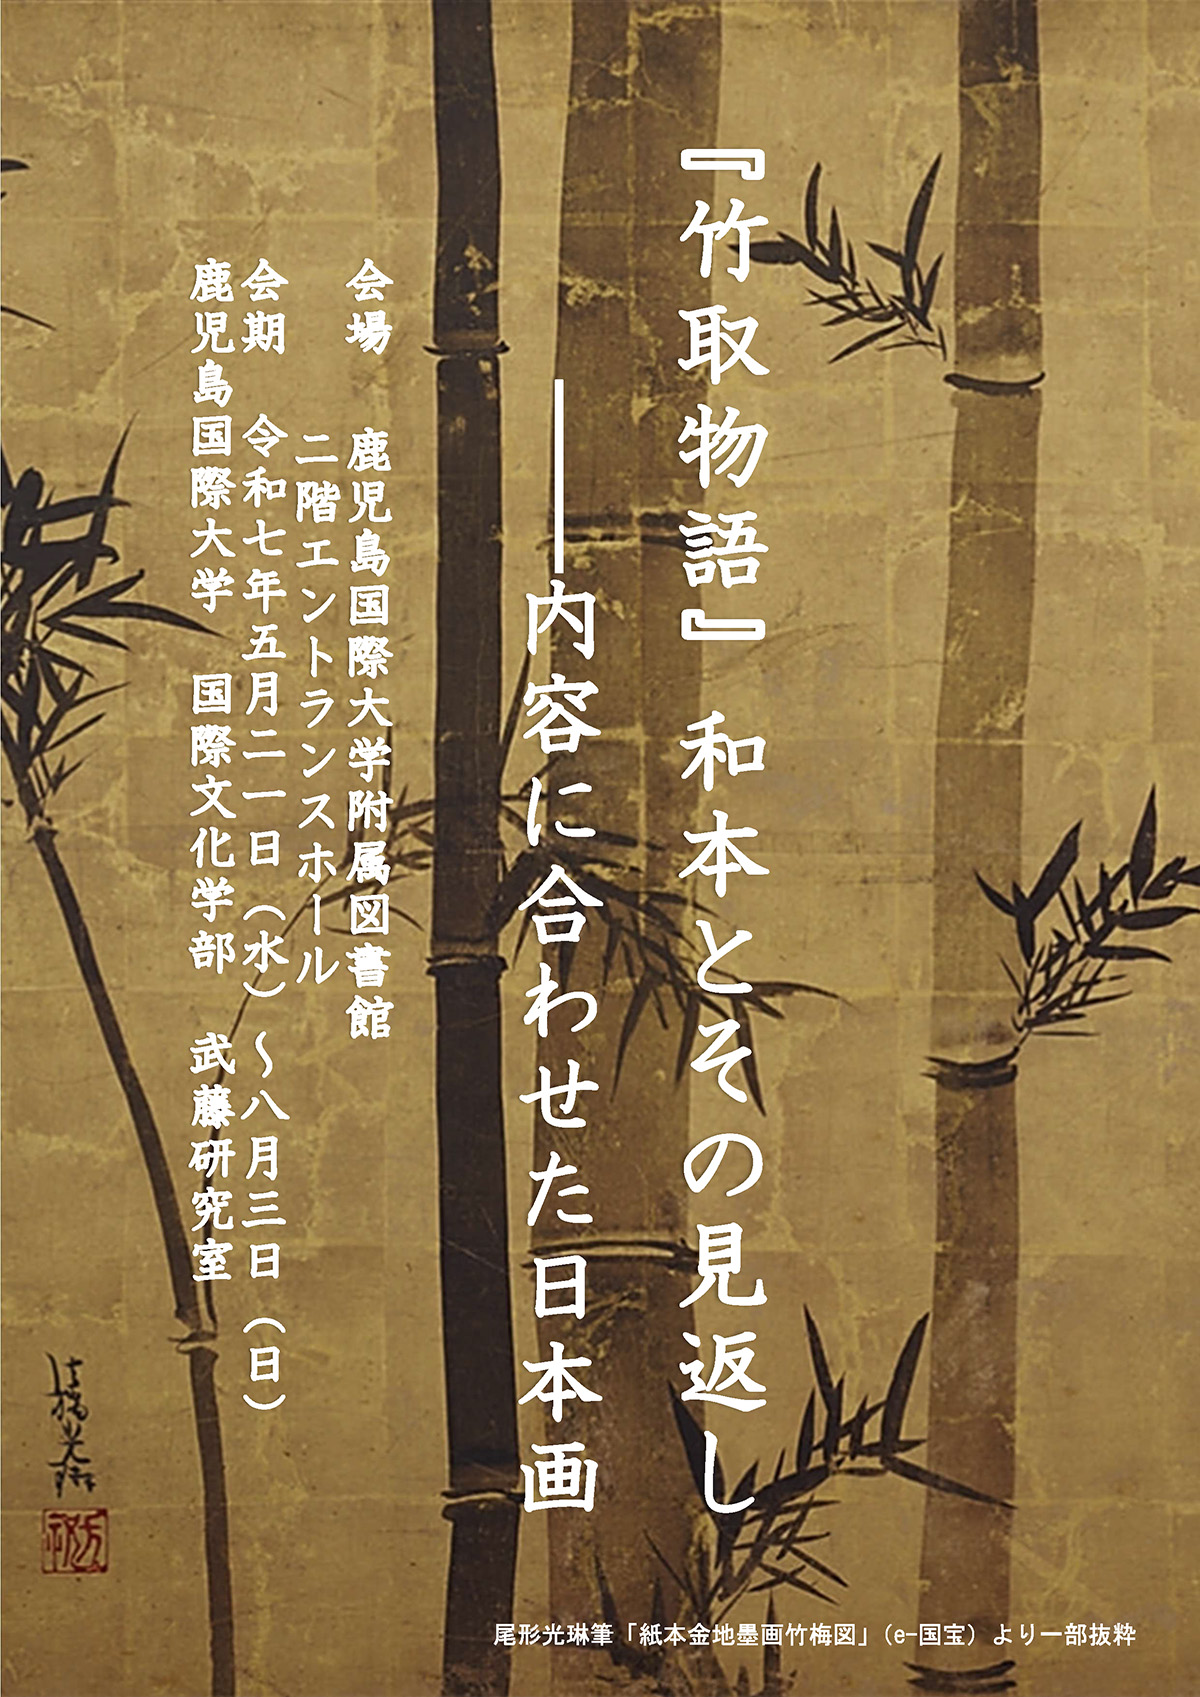 『竹取物語』　和本とその見返し
――内容に合わせた日本画
会場　鹿児島国際大学附属図書館
二階エントランスホール
会期　令和七年五月二一日（水）～八月三日（日）
鹿児島国際大学　国際文化学部　武藤研究室
法橋光琳
尾形光琳筆「紙本金地墨画竹梅図」（e-国宝）より一部抜粋